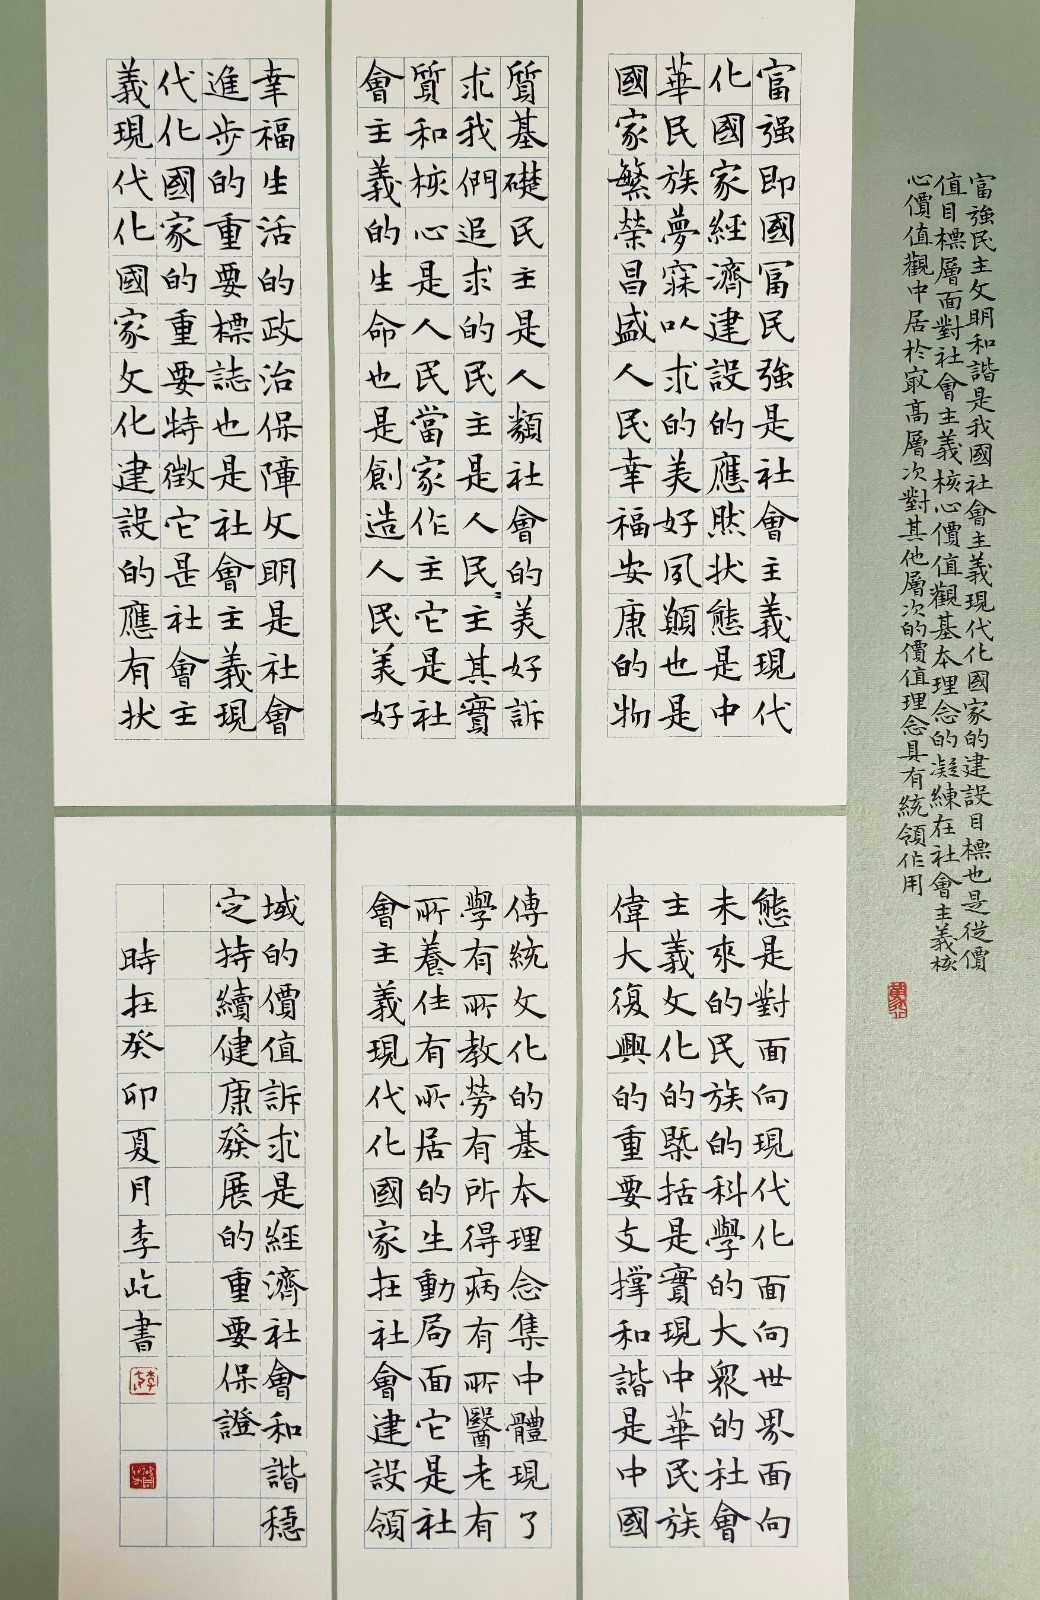 富強民主文明和諧是我國社會主義現代化國家的建設目標也是從價
值目標層面對社會主義核心價值觀基本理念的凝練在社會主義核
心價值觀中居於最高層次對其他層次的價值理念具有統領作用
富强即國冨民強是社會主義現代
化國家經濟建設的應然狀態是中
華民族夢寐以求的美好夙願也是
國家繁榮昌盛人民幸福安康的物
質基礎民主是人類社會的美好訴
求我們追求的民主是人民〻主其實
質和核心是人民當家作主它是社
會主義的生命也是創造人民美好
幸福生活的政治保障文明是社會
進步的重要標誌也是社會主義現
代化國家的重要特徵它是社會主
義現代化國家文化建設的應有狀
態是對面向現代化面向世界面向
未來的民族的科學的大眾的社會
主義文化的概括是實現中華民族
偉大復興的重要支撐和諧是中國
傳統文化的基本理念集中體現了
學有所教勞有所得病有所醫老有
所養住有所居的生動局面它是社
會主義現代化國家在社會建設領
域的價值訴求是經濟社會和諧穩
定持續健康發展的重要保證
時在癸卯夏月李屹書